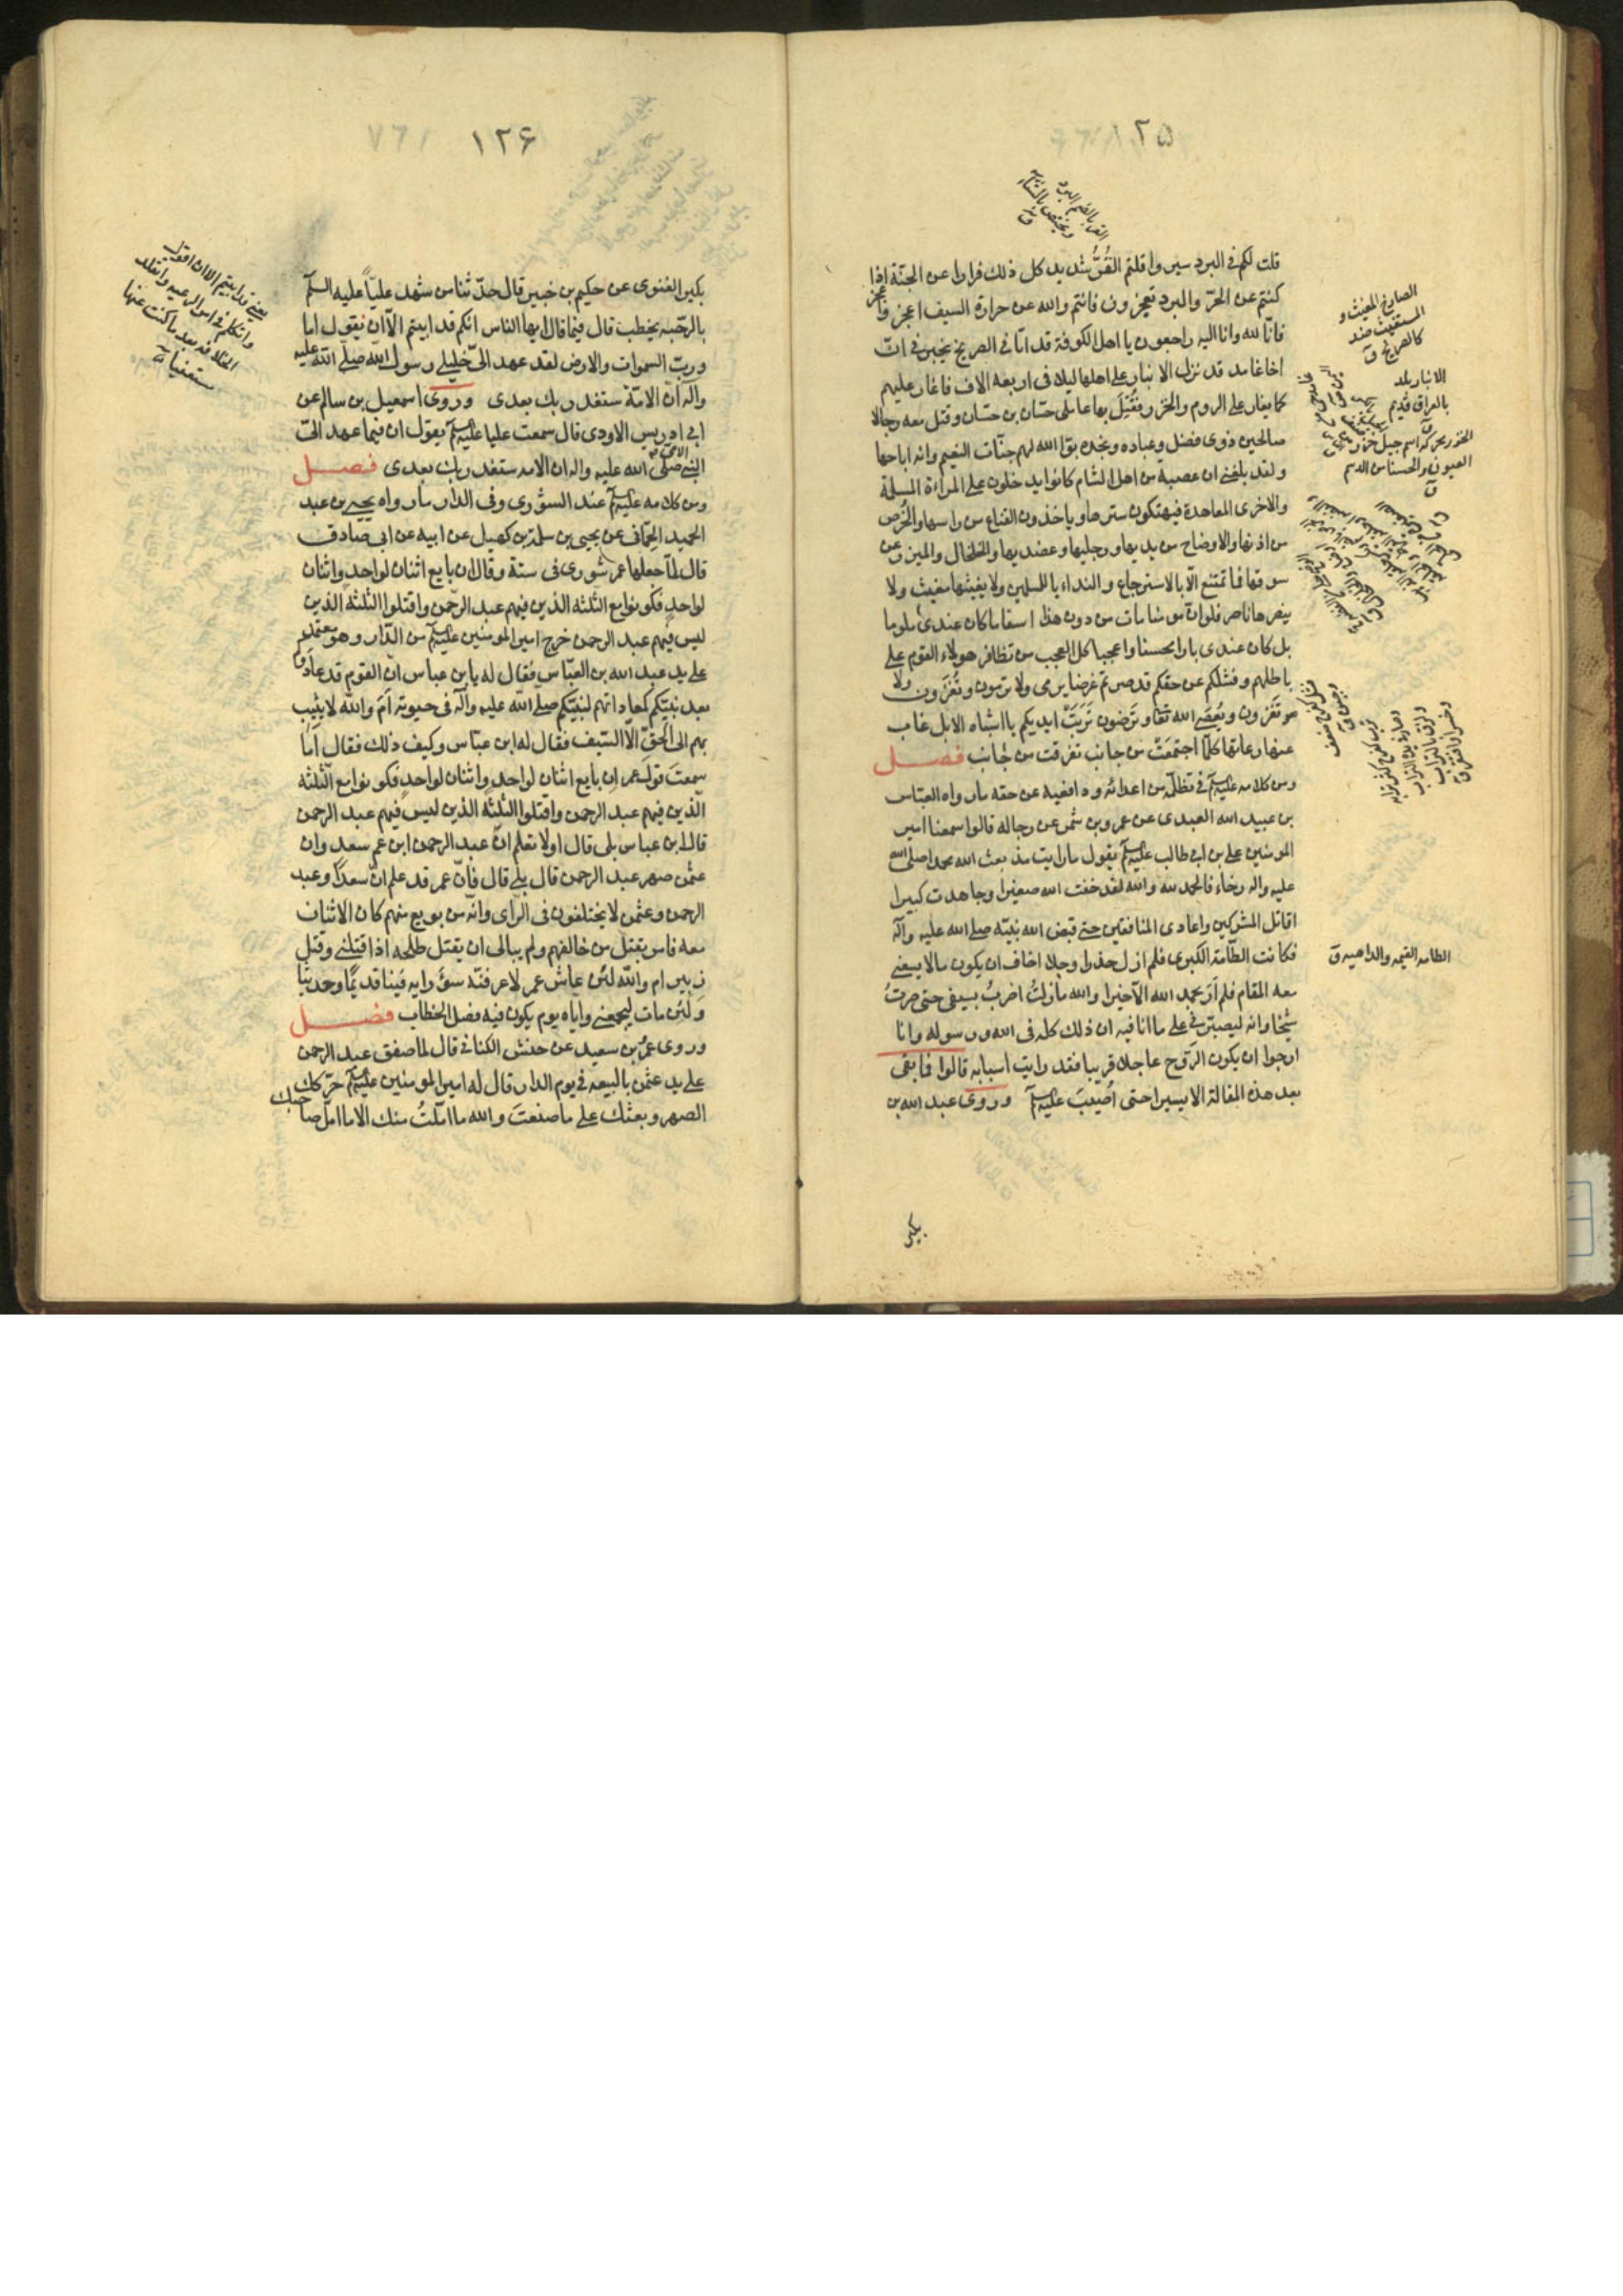 ١٢٥
قلت لكم في البرد سيروا قلتم القُرُّ شديد كل ذلك فرارا عن الجنّة اذا
كنتم عن الحرّ والبرد تعجزون فانتم والله عن حرارة السيف اعجز واعجز
فانّا لله وانا اليه راجعون يا اهل الكوفة قد اتاني الصريخ يخبرني انّ
اخا غامد قد نزل الانبار على اهلها ليلا في اربعه الاف فاغار عليهم
كما يغار على الروم والخزر فقُتِلَ بها عاملى حسّان بن حسّان وقتل معه رجالا
صالحين ذوى فضل وعباده ونجده بوّا الله لهم جنّات النعيم وانه اباحها
ولقد بلغني ان عصبة من اهل الشام كانوا يدخلون على المراءة المسلمة
والاخرى المعاهدة فيهتكون سترها وياخذون القناع من راسها والخُرص
من اذنها والاوضاح من يديها ورجليها وعضديها والخلخال والميزر عن
سوقها فما تمتنع الّا بالاسترجاع والنداء يا للمسلمين ولا يغيثها مغيث ولا
ينصرها ناصر فلو ان مومنا مات من دون هذا اسفا ما كان عندى ملوما
بل كان عندى بارا محسنا واعجبا كل العجب من تظافر هولاء القوم على
باطلهم وفشلكم عن حقكم قد صرتم غرضا يرمى ولا ترمون وتُغزَون ولا
تغزون ويُعصَى الله تعا وترضون تَرِبَتْ ايديكم يا اشباه الابل غاب
عنها رعاتها كلّما اجتمعَتْ من جانب تفرقت من جانب فصـــل
ومن كلامه عليه السلم في تظلّمه من اعدائه ودافعيه عن حقه ما رواه العبّاس
بن عبيد الله العبدى عن عمرو بن شمر عن رجاله قالوا سمعنا امير
المومنين على بن ابى طالب عليه السلم يقول ما رايت منذ بعث الله محمدا صلى الله
عليه واله رخاء فالحمد لله والله لقد خفت الله صغيرا وجاهدت كبيرا
اقاتل المشركين واعادى المنافقين حتى قبض الله نبيّه صلى الله عليه وآله
فكانت الطّامّة الكبرى فلم ازل حذرا وجلا اخاف ان يكون مالا يسعنى
معه المقام فلم اَرَ بحمد الله الّا خيرا والله مازلتُ اضربُ بسيفى حتى صرتُ
شيخا وانه ليصبّرنى على ما انا فيه ان ذلك كله فى الله ورسوله وانا
ارجوا ان يكون الرَوح عاجلا قريبا فقد رايت اسبابه قالوا فما بقى
بعد هذه المقالة الا يسيرا حتى اُصيبَ عليه السلم وروى عبد الله بن
بكير
القر بالضم البرد
ويختص بالشتاء
ق
الصارخ المغيث و
المستغيث ضد
كالصريخ ق
الانبار بلد
بالعراق قديم
ق
الخزر محركه اسم جيل خزر
العيون
الطامه القيمه والداهيه ق
١٢۶
بكير الغنوى عن حكيم بن جبير قال حدّثنا من شهد عليّاً عليه السلم
بالرحّبه يخطب قال فيما قال ايها الناس انكم قد ابيتم الّا ان نقول اما
وربّ السموات والارض لقد عهد الىّ خليلى رسول الله صلى الله عليه
واله ان الامّة ستغدر بك بعدى وروى اسمعيل بن سالم عن
ابى ادريس الاودى قال سمعت عليا عليه السلم يقول ان فيما عهد الىّ
النبى الامىّ صلى الله عليه واله ان الامه ستغدر بك بعدى فصـــل
ومن كلامه عليه السلم عند الشورى وفى الدار ما رواه يحيى بن عبد
الحميد الحِمّانى عن يحيى بن سلمة بن كهيل عن ابيه عن ابى صادق
قال لمّا جعلها عمر شورى فى ستة وقال ان بايع اثنان لواحدٍ واثنان
لواحدٍ فكونوا مع الثلثه الذين فيهم عبد الرحمن واقتلوا الثلثة الذين
ليس فيهم عبد الرحمن خرج امير المومنين عليه السلم من الدّار وهو معتمد
على يد عبد الله بن العبّاس فقال له يابن عباس ان القوم قد عادَوكم
بعد نبيّكم كمعاداتهم لنبيّكم صلى الله عليه وآله فى حيوته اَمَ والله لا ينيب
بهم الى الحقّ الّا السّيف فقال له ابن عبّاس وكيف ذلك فقال اَما
سمعتَ قول عمر ان بايع اثنان لواحدٍ واثنان لواحدٍ فكونوا مع الثلثه
الّذين فيهم عبد الرحمن واقتلوا الثلثه الذين ليس فيهم عبد الرحمن
قال ابن عباس بلى قال اولا تعلم انّ عبد الرحمن ابن عم سعد وان
عثمن صهر عبد الرحمن قال بلى قال فانّ عمر قد علم انّ سعداً وعبد
الرحمن وعثمن لا يختلفون فى الرّاى وانّه من بويع منهم كان الاثنان
معه فامر بقتل من خالفهم ولم يبالى ان يقتل طلحه اذا قتلنى وقتل
زبير ام والله لئن عاش عمر لاعرفنّه سوءَ رايه فينا قديمًا وحديثا
ولئن مات ليجمعنى واياه يوم يكون فيه فصل الخطاب فصـــل
وروى عمرُ بن سعيد عن حنش الكنانى قال لما صفق عبد الرحمن
على يد عثمن بالبيعه فى يوم الدار قال له امير المومنين عليه السلم حرّكك
الصهر وبعثك على ما صنعتَ والله ما امّلتَ منه الا ما امّل صاحبك
يعنى قد ابيتم الا ان اقول
واتكلم فى امر الرعيه واتقلد
الخلافه بعد ما كنت عنها
مستعفيا